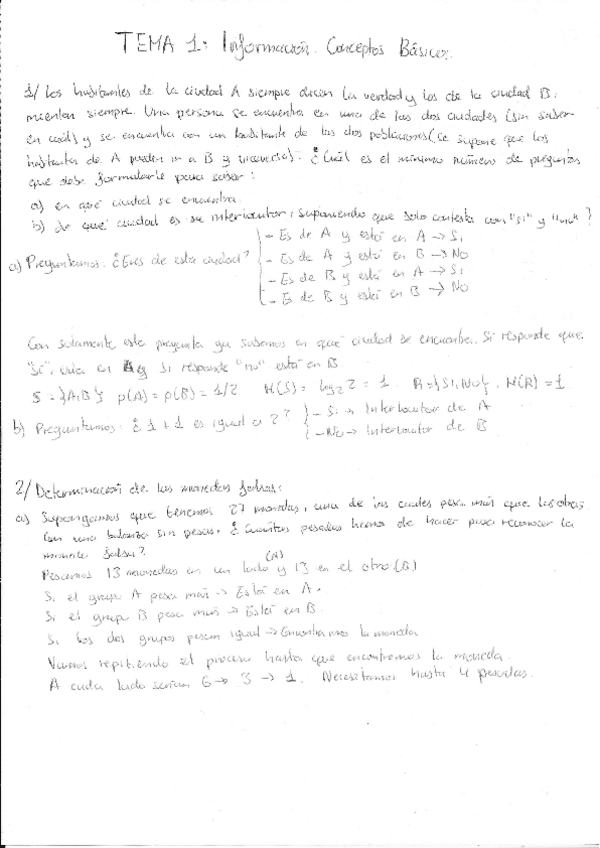 TEMA 1: Información. Conceptos Básicos.
1/ Los habitantes de la ciudad A siempre dicen la verdad y los de la ciudad B
mienten siempre. Una persona se encuentra en una de las dos ciudades (sin saber
en cuál) y se encuentra con un habitante de las dos poblaciones (se supone que los
habitantes de A pueden ir a B y viceversa). ¿Cuál es el mínimo número de preguntas
que debe formularle para saber:
a) en qué ciudad se encuentra
b) de qué ciudad es su interlocutor, suponiendo que solo contesta con "si" y "no"?
a) Preguntamos: ¿Eres de esta ciudad?
- Es de A y está en A → Si
- Es de A y está en B → No
- Es de B y está en A → Si
- Es de B y está en B → No
Con solamente esta pregunta ya sabemos en qué ciudad se encuentra. Si responde que
"si", está en A y si responde "no" está en B
S = {A,B} p(A) = p(B) = 1/2 H(S) = log₂ 2 = 1. R = {Si, No}, H(R) = 1
b) Preguntamos: ¿1 + 1 es igual a 2?
- Si → Interlocutor de A
- No → Interlocutor de B
2/ Determinación de las monedas falsas:
a) Supongamos que tenemos 27 monedas, una de las cuales pesa más que las otras
con una balanza sin pesas. ¿Cuántas pesadas hemos de hacer para reconocer la
moneda falsa?
Pesamos 13 monedas en un lado (A) y 13 en el otro (B)
Si el grupo A pesa más → Está en A.
Si el grupo B pesa más → Está en B.
Si los dos grupos pesan igual → Encontramos la moneda
Vamos repitiendo el proceso hasta que encontremos la moneda.
A cada lado serían 6 → 3 → 1. Necesitamos hasta 4 pesadas.